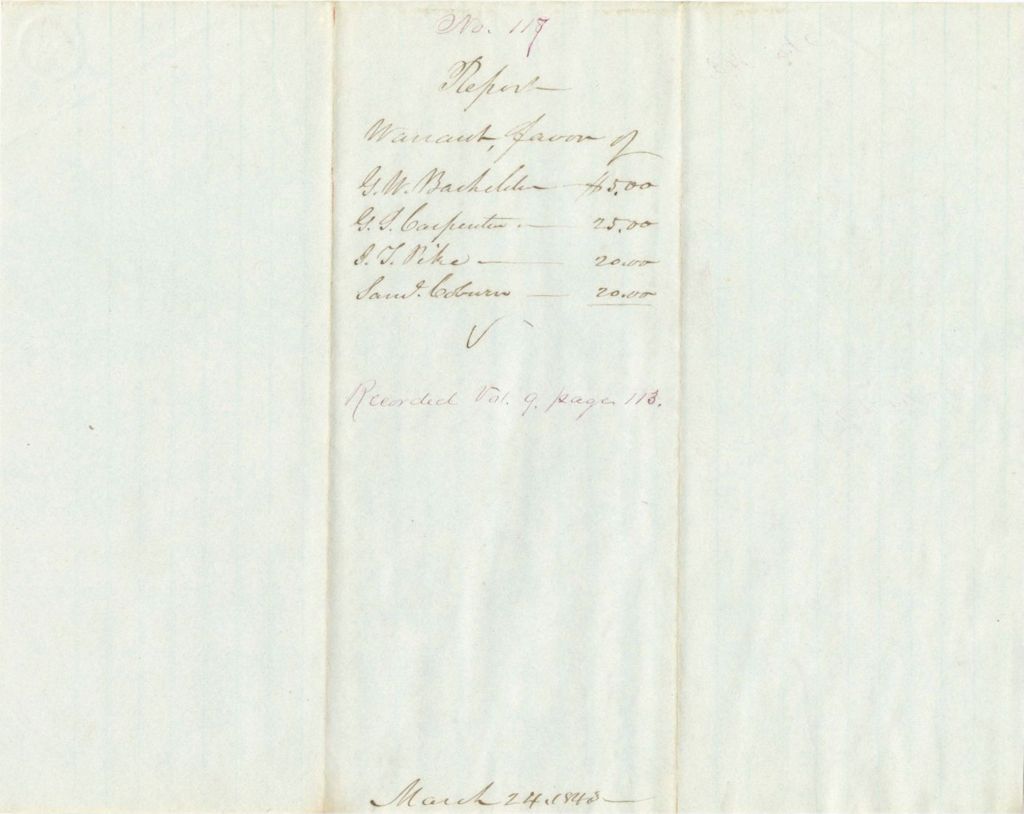 No. 117
Report
Warrant, favor of
G. W. Bachelder — $5.00
G. S. Carpenter. — 25.00
J. T. Pike — 20.00
Saml. Coburn — 20.00
Recorded Vol. 9. page 113.
March 24. 1843 —